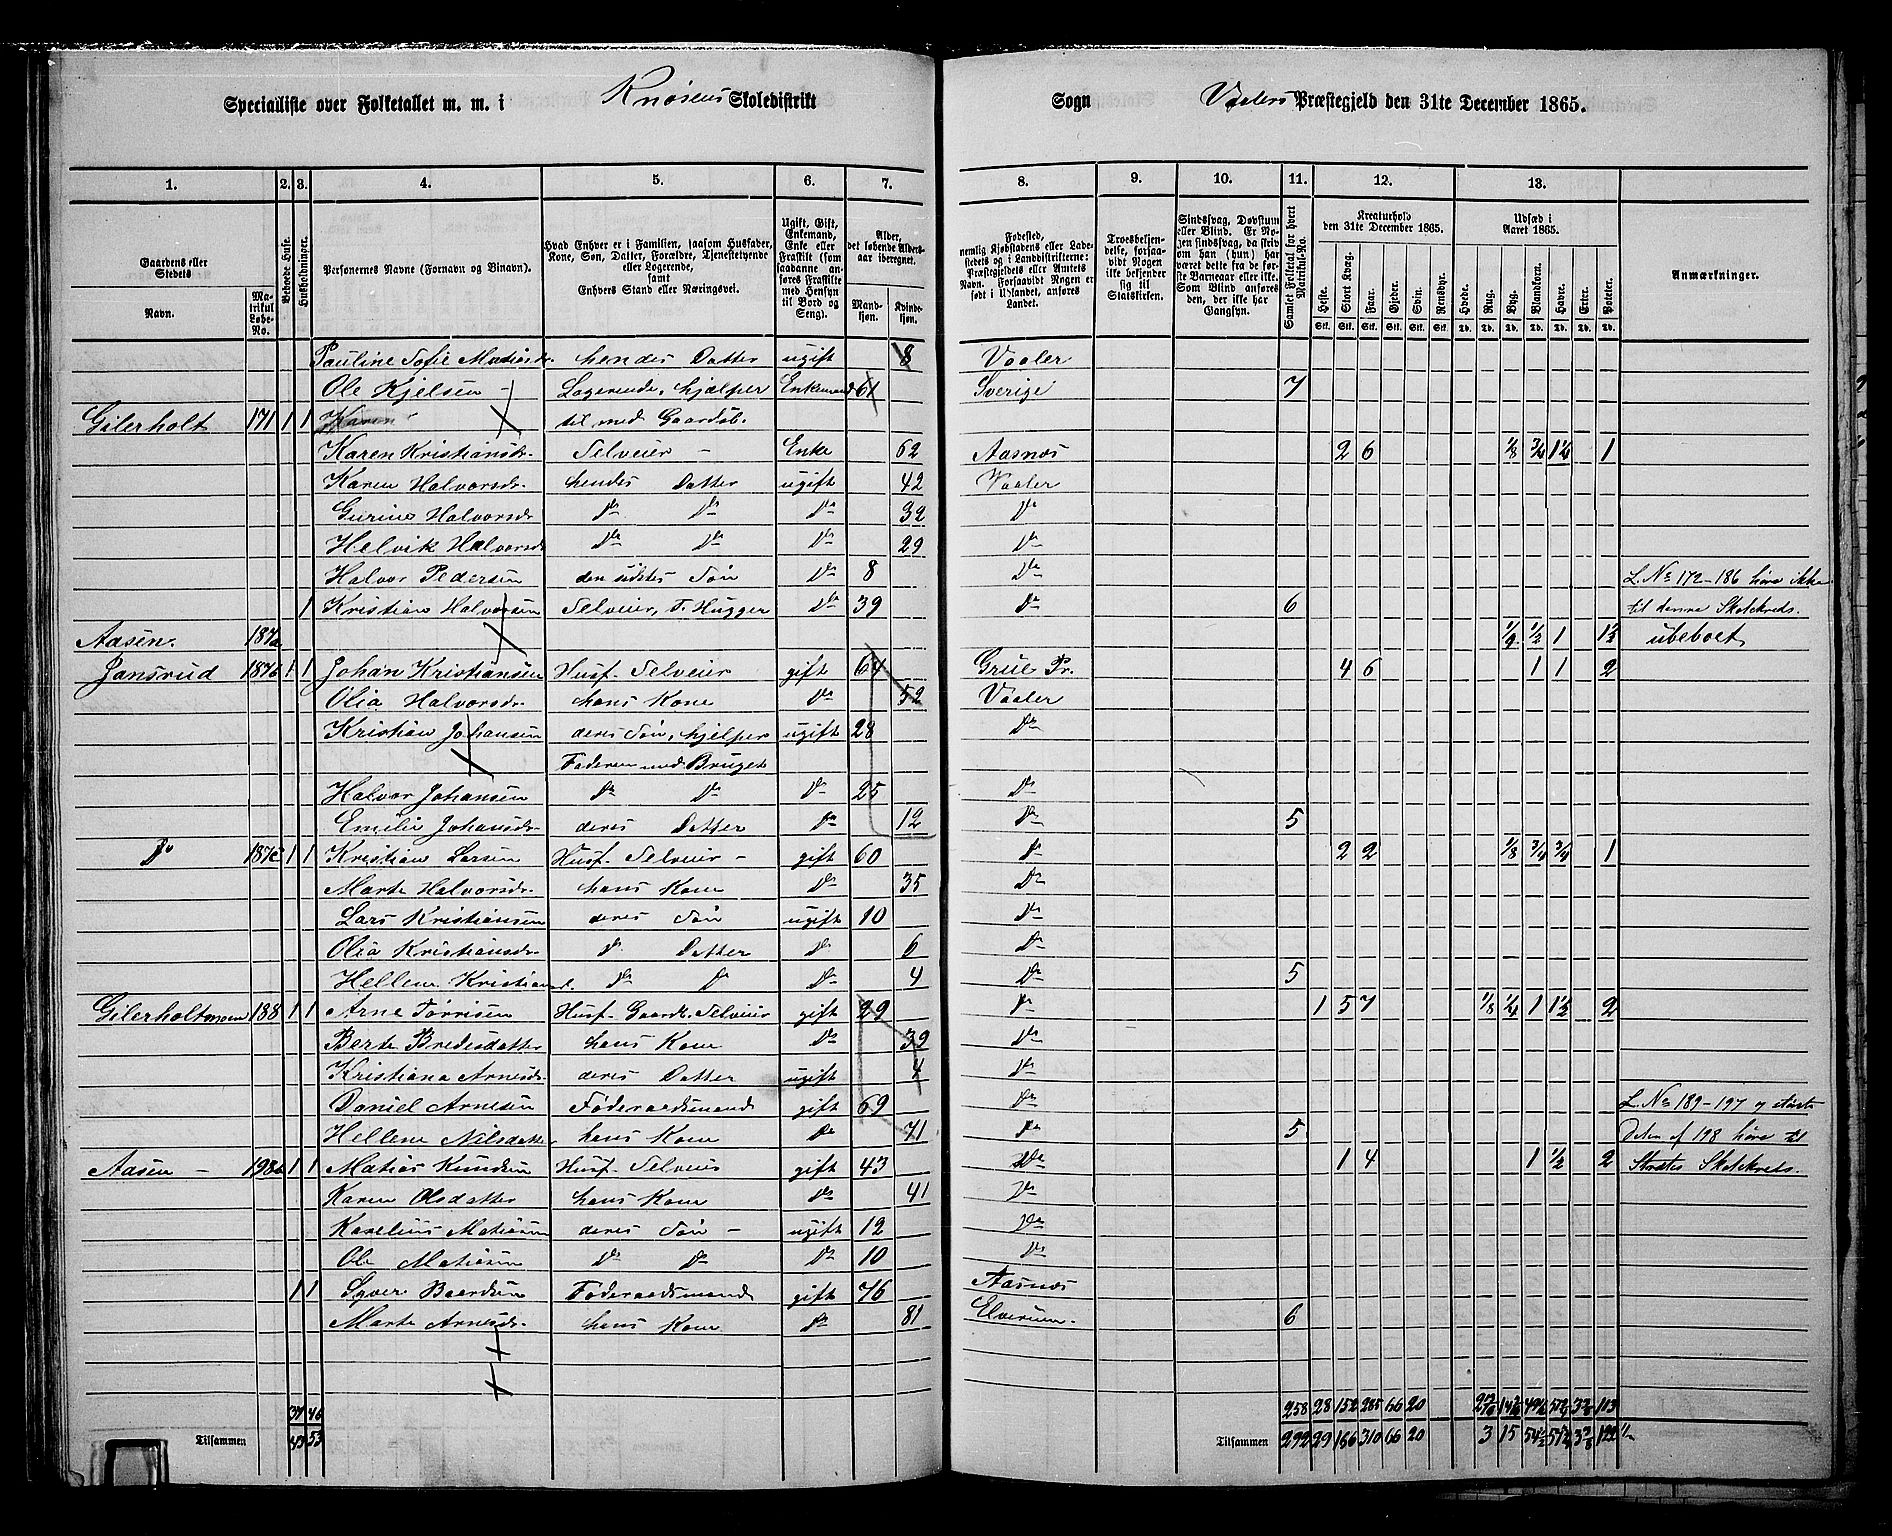 Specialliste over Folketallet m. m. i Knosens Skoledistrikt Sogn Vaalers Præstegjeld den 31te December 1865.
1. 2. 3. 4. 5. 6. 7. 8. 9. 10. 11. 12. 13.
Gaardens eller Stedets
Navn.
Matrikul Løbe-No.
Beboede Huse.
Husholdninger.
Personernes Navne (Fornavn og Binavn).
Hvad Enhver er i Familien, saasom Husfader, Kone, Søn, Datter, Forældre, Tjenestetyende eller Logerende, samt Enhvers Stand eller Næringsvei.
Ugift, Gift, Enkemand, Enke eller Fraskilt (som saadanne anføres Fraskilte med Hensyn til Bord og Seng).
Alder, det løbende Alders-aar iberegnet.
Mandkjøn. Kvindekjøn.
Fødested, nemlig Kjøbstadens eller Ladestedets og i Landdistrikterne: Præstegjeldets eller Amtets Navn. Forsaavidt Nogen er født i Udlandet, anføres Landet.
Troesbekjendelse, forsaavidt Nogen ikke bekjender sig til Statskirken.
Sindssvag, Døvstum eller Blind. Er Nogen sindssvag, da skrives om han (hun) har været dette fra de første Barneaar eller ikke. Som Blind anføres den, der ikke har Gangsyn.
Samlet Folketal for hvert Matrikul-No.
Kreaturhold den 31te December 1865.
Heste. Stort Kvæg. Faar. Gjeder. Svin. Rensdyr.
Udsæd i Aaret 1865.
Hvede. Rug. Byg. Blandkorn. Havre. Erter. Poteter.
Anmærkninger.
Pauline Sofie hendes Datter ugift 8 Vaaler
Ole Kjelsen - Logerende, hjælper Enkemand 61 Sverige 7
Gilerholt 171 1 1 Karen til med Gaardsb.
Karen Kristiansdr. Selveier - Enke 62 Aasnes 2 6 1/8 3/4 1 1/4 1
Karen Halvorsdr. hendes Datter ugift 42 Vaaler
Gurine Halvorsdr Do Do Do 32 Do
Helvik Halvorsdr Do Do Do 29 Do
Halvor Pedersen den sidstes Søn Do 8 Do L. No 172-186 høre ikke
1 Kristian Halvorsen Selveier, T. Hugger Do 39 Do 6 til denne Skolekreds.
Aasen. 187a 1/2 1 1 1/2 ubeboet
Jansrud 187b 1 1 Johan Kristiansen Husf. Selveier gift 64 Grue Pr. 4 6 1 1 2
Olia Halvorsdr. hans Kone Do 52 Vaaler
Kristian Johansen deres Søn, hjelper ugift 28 Do
Faderen med Bruget
Halvor Johansen Do Do Do 25 Do
Emilie Johansdr. deres Datter Do 12 Do 5
Do 187c 1 1 Kristian Larsen Husf. Selveier - gift 60 Do 2 2 1/8 3/4 3/4 1
Marte Halvorsdr. hans Kone Do 35 Do
Lars Kristiansen deres Søn ugift 10 Do
Olia Kristiansdr. Do Datter Do 6 Do
Hellene Kristiansd. Do Do Do 4 Do 5
188 1 1 Arne Tørrisen Husf. Gaardb. Selveier gift 29 Do 1 5 7 1/8 1/4 1 1 1/2 2
Berte Bredesdatter hans Kone Do 39 Do
Kristiana Arnesdr. deres Datter ugift 4 Do
Daniel Arnesen Føderaadsmand gift 69 Do L. No 189-197 og største
Hellene Nilsdatter hans Kone Do 71 Do 5 Delen af 198 høre til
Aasen - 198 1 1 Matias Knudsen Husf. Selveier gift 43 Do 1 4 1 1/2 2 Skolekreds.
Karen Olsdatter hans Kone Do 41 Do
Karelius Matiasen deres Søn - ugift 12 Do
Ole Matiasen Do Do Do 10 Do
1 1 Syver Baardsen Føderaadsmand gift 76 Aasnes
Marte Arnesdr. hans Kone Do 81 Elverum. 6
37 46 258 28 152 285 66 20 113
Tilsammen 43 53 Tilsammen 292 29 166 310 66 20 3 15 122